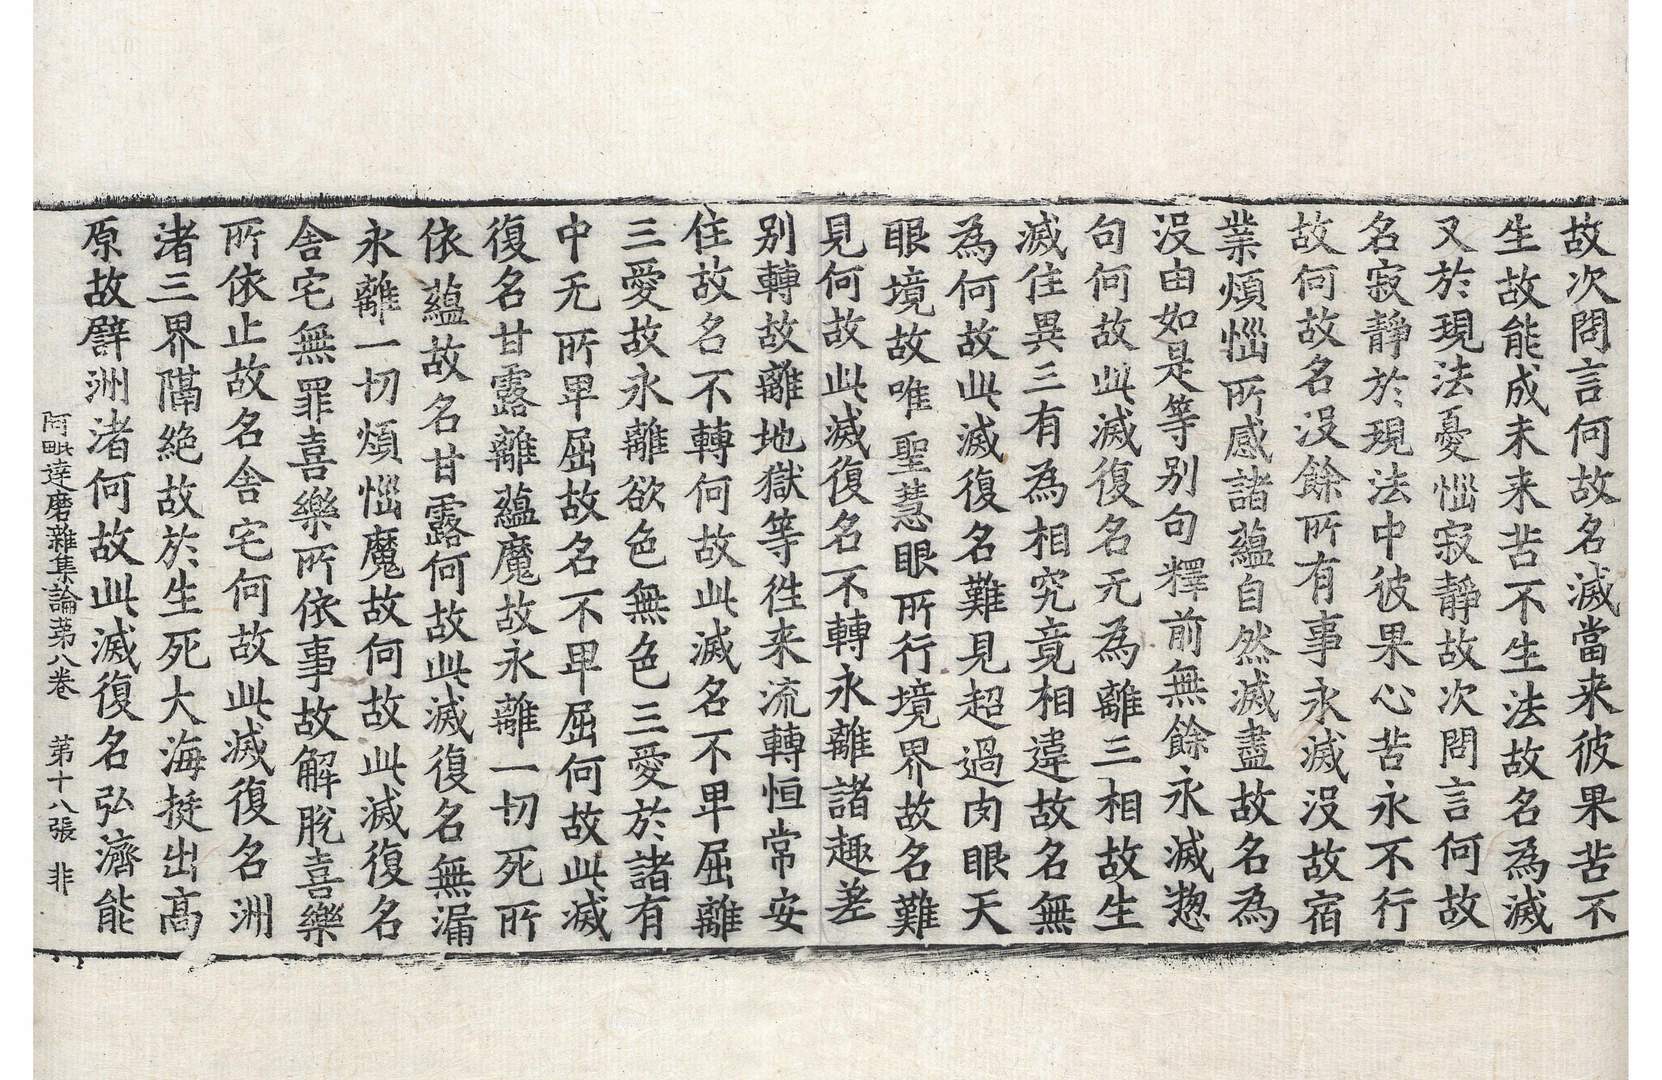 故次問言何故名滅當来彼果苦不
生故能成未来苦不生法故名為滅
又於現法憂惱寂靜故次問言何故
名寂靜於現法中彼果心苦永不行
故何故名没餘所有事永滅没故宿
業煩惱所感諸蘊自然滅盡故名為
没由如是等别句釋前無餘永滅惣
句何故此滅復名无為離三相故生
滅住異三有為相究竟相違故名無
為何故此滅復名難見超過肉眼天
眼境故唯聖慧眼所行境界故名難
見何故此滅復名不轉永離諸趣差
别轉故離地獄等徃来流轉恒常安
住故名不轉何故此滅名不卑屈離
三愛故永離欲色無色三愛於諸有
中无所卑屈故名不卑屈何故此滅
復名甘露離蘊魔故永離一切死所
依蘊故名甘露何故此滅復名無漏
永離一切煩惱魔故何故此滅復名
舍宅無罪喜樂所依事故解脫喜樂
所依止故名舍宅何故此滅復名洲
渚三界隔絶故於生死大海挺出高
原故譬洲渚何故此滅復名弘濟能
阿毗達磨雜集論苐八卷 苐十八張 非